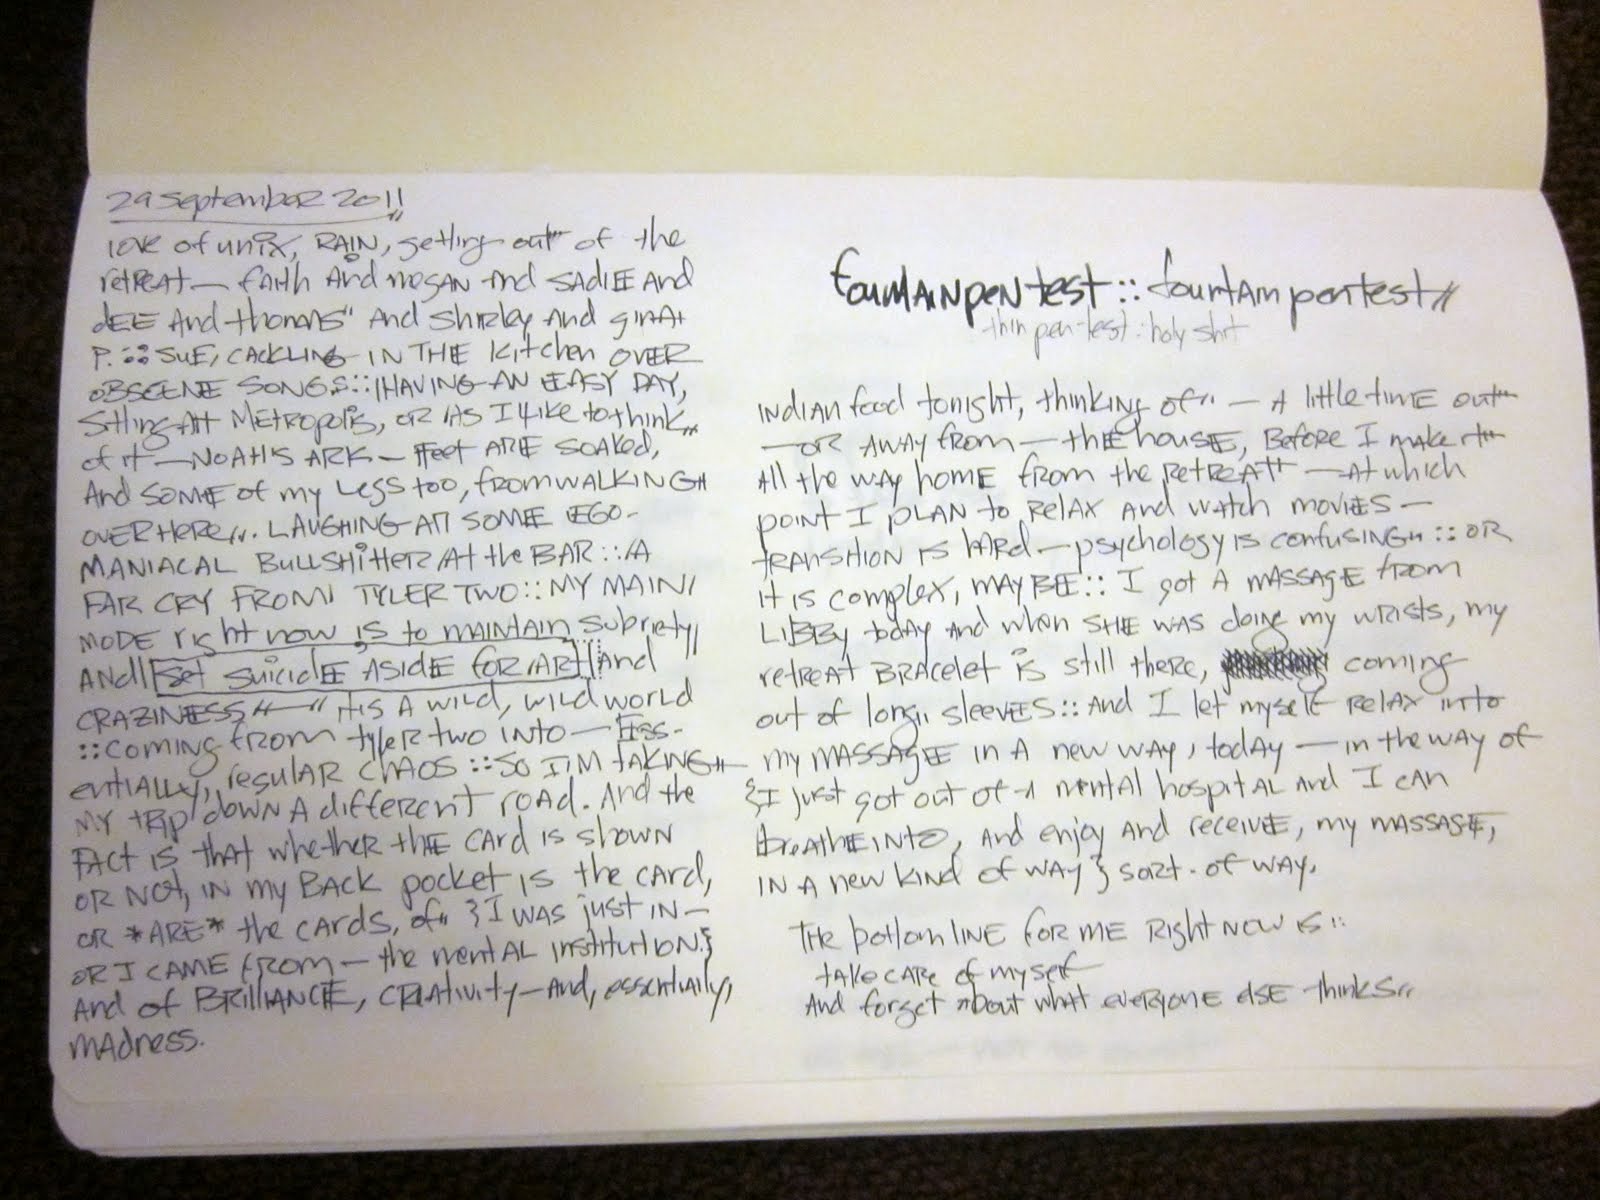 29 September 2011
love of unix, RAIN, getting out of the
retreat — faith and megan and SADIE and
DEE And thomas" And Shirley and gina
P. :: SUE, CACKLING IN THE kitchen OVER
OBSCENE SONGS :: HAVING AN EASY DAY,
Sitting At METROPOLIS, OR AS I like to think
of it — NOAH'S ARK — feet ARE SOAKED,
And SOME of my Legs too, from WALKING
OVER HERE,,. LAUGHING AT SOME EGO-
MANIACAL BULLSHITTER At the BAR :: A
FAR CRY FROM TYLER TWO :: MY MAIN
MODE right now is to MAINTAIN subriety,
And set suicide ASIDE for ART and
CRAZINESS,, — " it is A wild, wild world
:: coming from tyler two into — Ess-
entially, regular CHAOS :: SO I'M TAKING
MY trip down A different road. And the
FACT is that whether the card is shown
OR NOT, IN my BACK pocket is the card,
OR *ARE* the cards, of" { I was just IN —
OR I CAME from — the mental institution. }
And of BRILLIANCE, CREAtivity — And, essentially,
MADness.
fountain pen test :: fountain pen test,,
thin pen test : holy shit
INDIAN food tonight, thinking of" — A little time out"
— OR AWAY from — the house, Before I make it"
All the WAY home from the retreat" — At which
point I PLAN to RELAX and watch movies —
TRANSITION IS HARD — psychology is confusing" :: OR
it is complex, MAYBE :: I got A MASSAGE from
LIBBY today and when SHE was doing my wrists, my
retreat BRACELET is still there, coming
out of long,, sleeves :: And I let myself RELAX into
my MASSAGE in A new way, today — in the way of
{ I just got out of A mental hospital AND I can
breathe into, and enjoy and receive, my massage,
IN A new kind of WAY } sort-of WAY.
THE bottom line for me Right Now is ::
take CARE of myself
And forget about what everyone else thinks,,